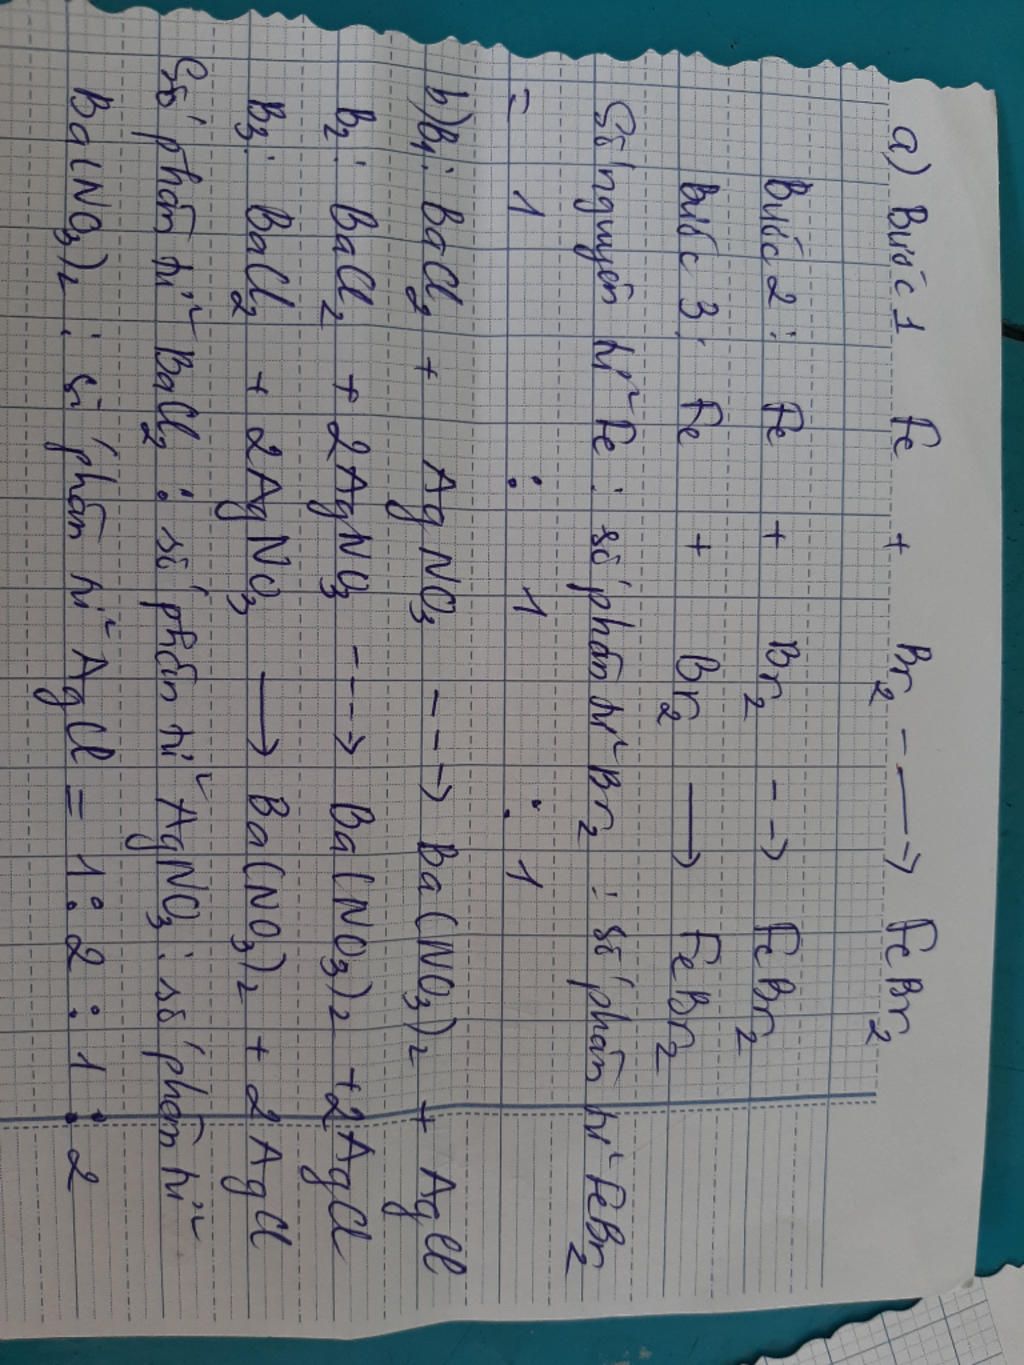 a) Bước 1 Fe + Br2 ---→ FeBr2
Bước 2: Fe + Br2 --→ FeBr2
Bước 3: Fe + Br2 → FeBr2
Số nguyên tử Fe : số phân tử Br2 : số phân tử FeBr2
= 1 : 1 : 1
b) B1: BaCl2 + AgNO3 ---→ Ba(NO3)2 + AgCl
B2: BaCl2 + 2AgNO3 ---→ Ba(NO3)2 + 2AgCl
B3: BaCl2 + 2AgNO3 → Ba(NO3)2 + 2AgCl
Số phân tử BaCl2 : số phân tử AgNO3 : số phân tử
Ba(NO3)2 : số phân tử AgCl = 1 : 2 : 1 : 2